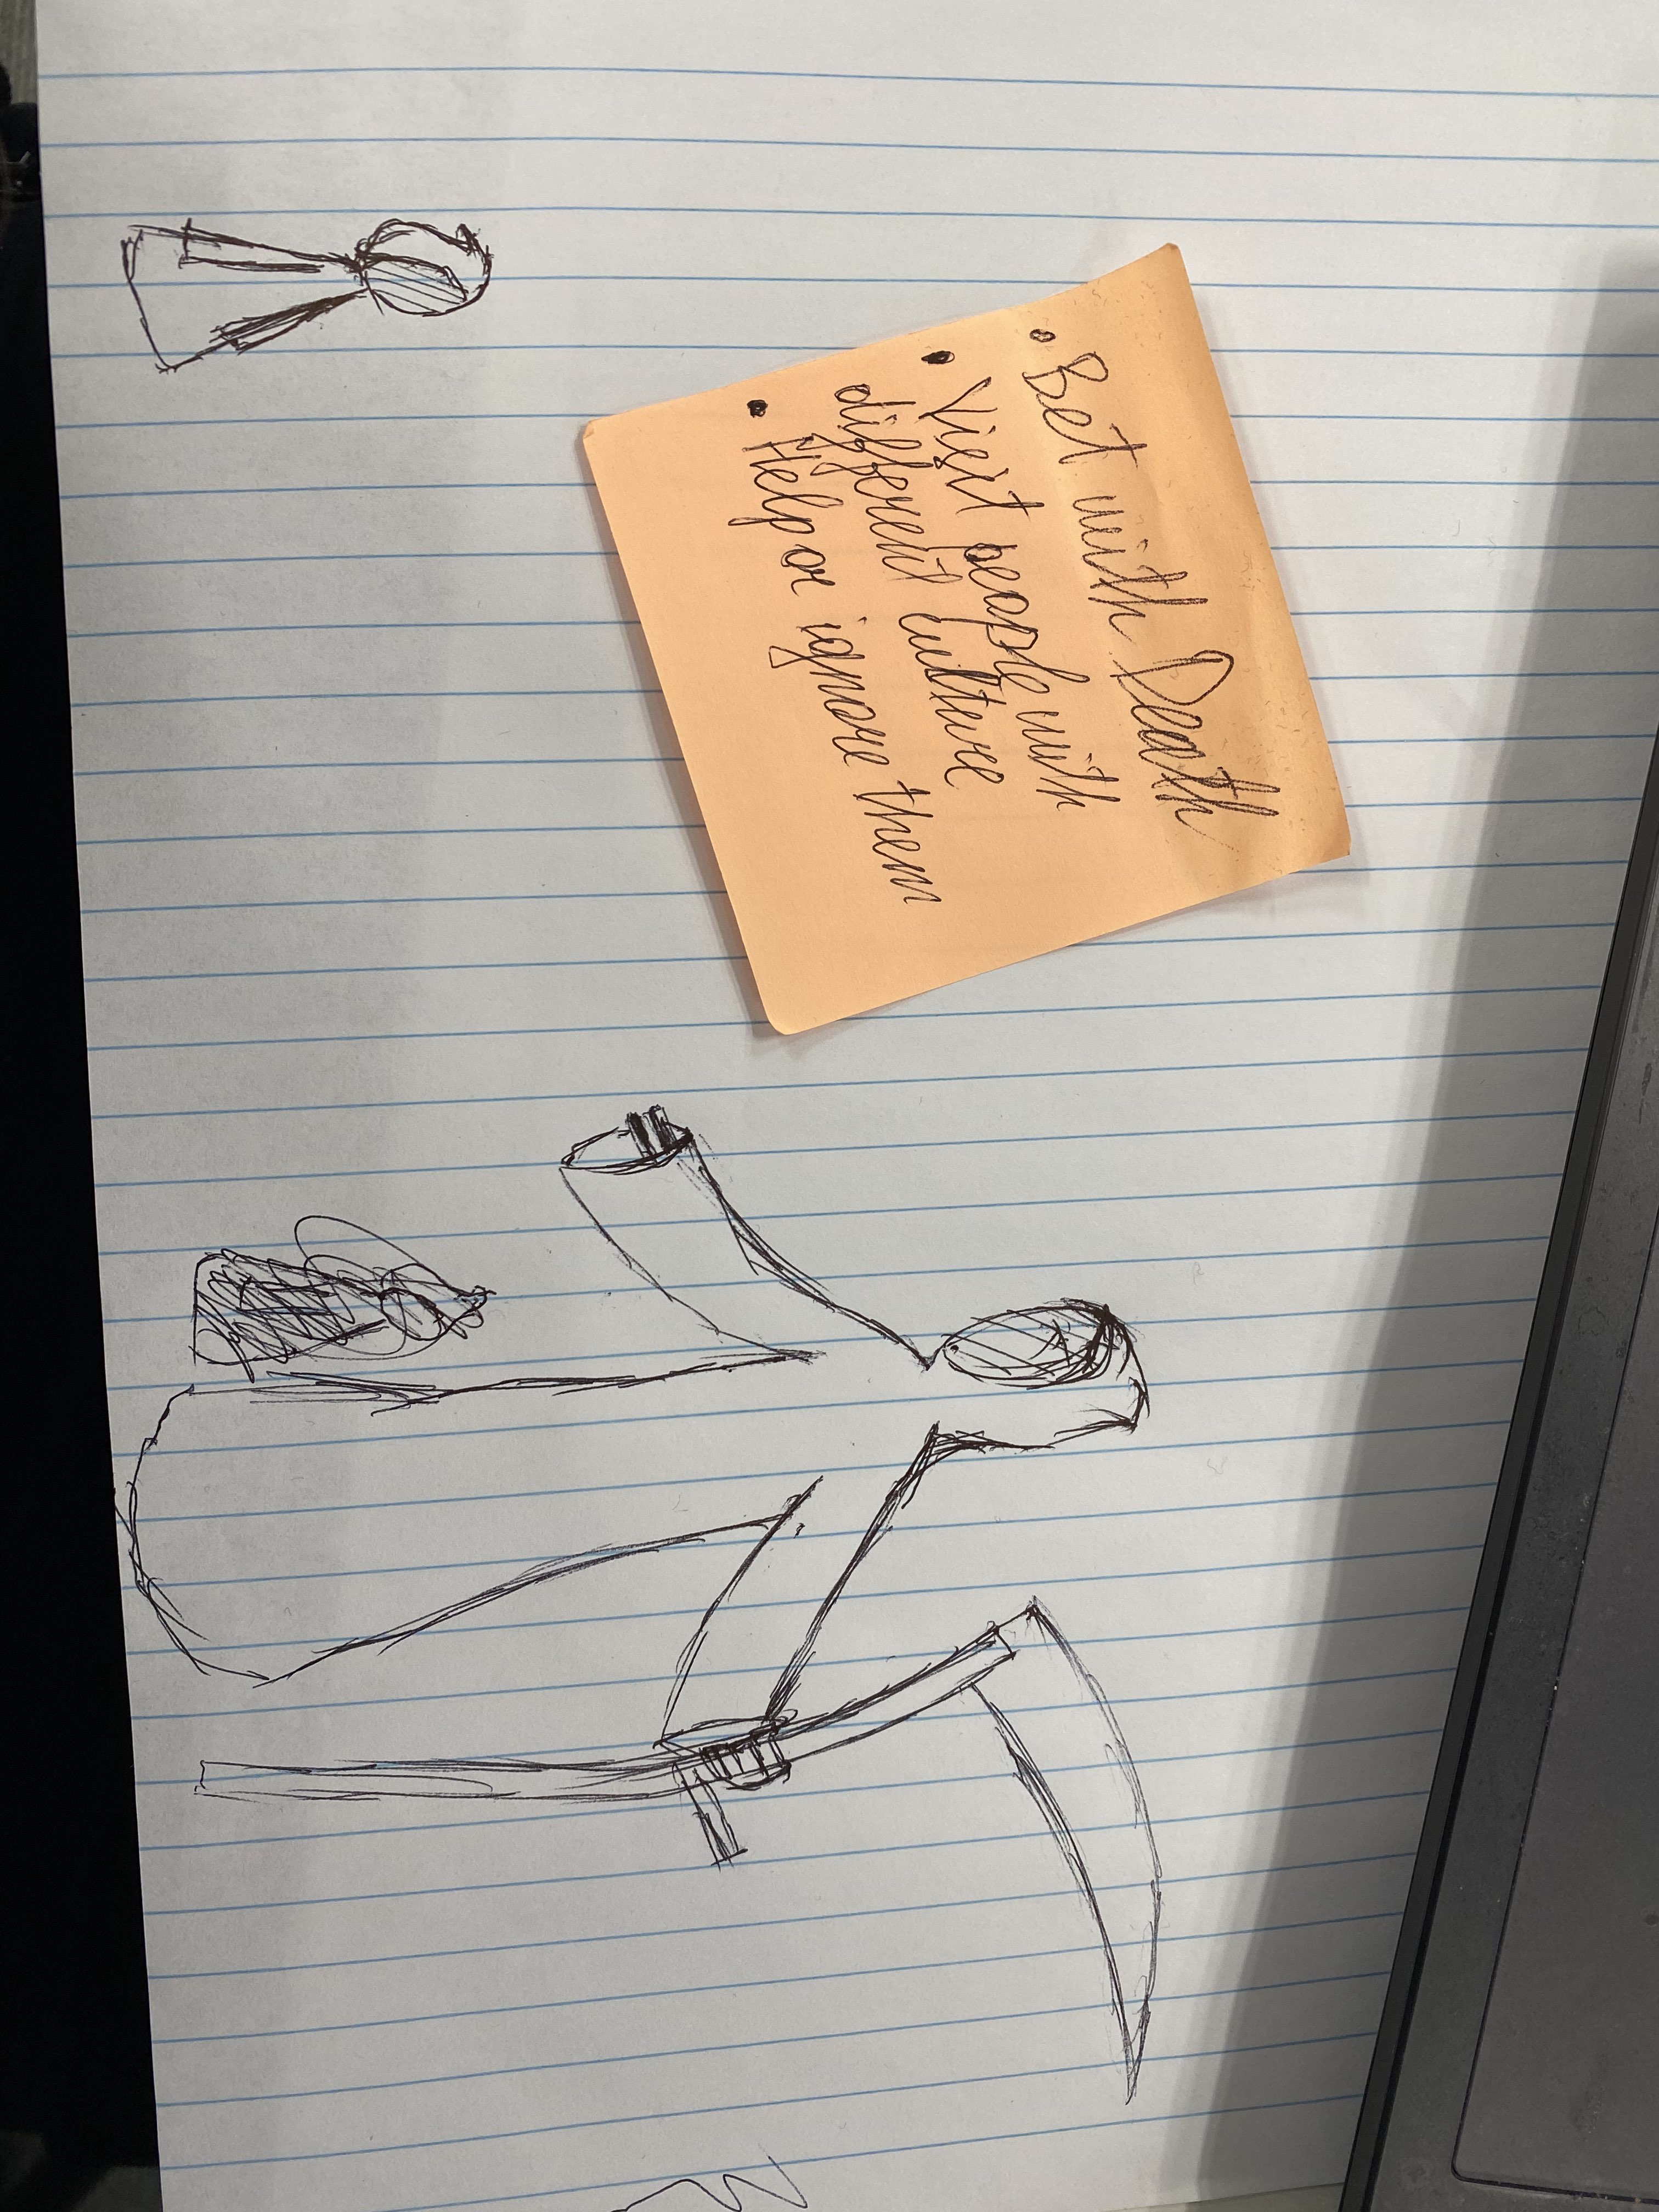 • Bet with Death
• Visit people with
different culture
• Help or ignore them